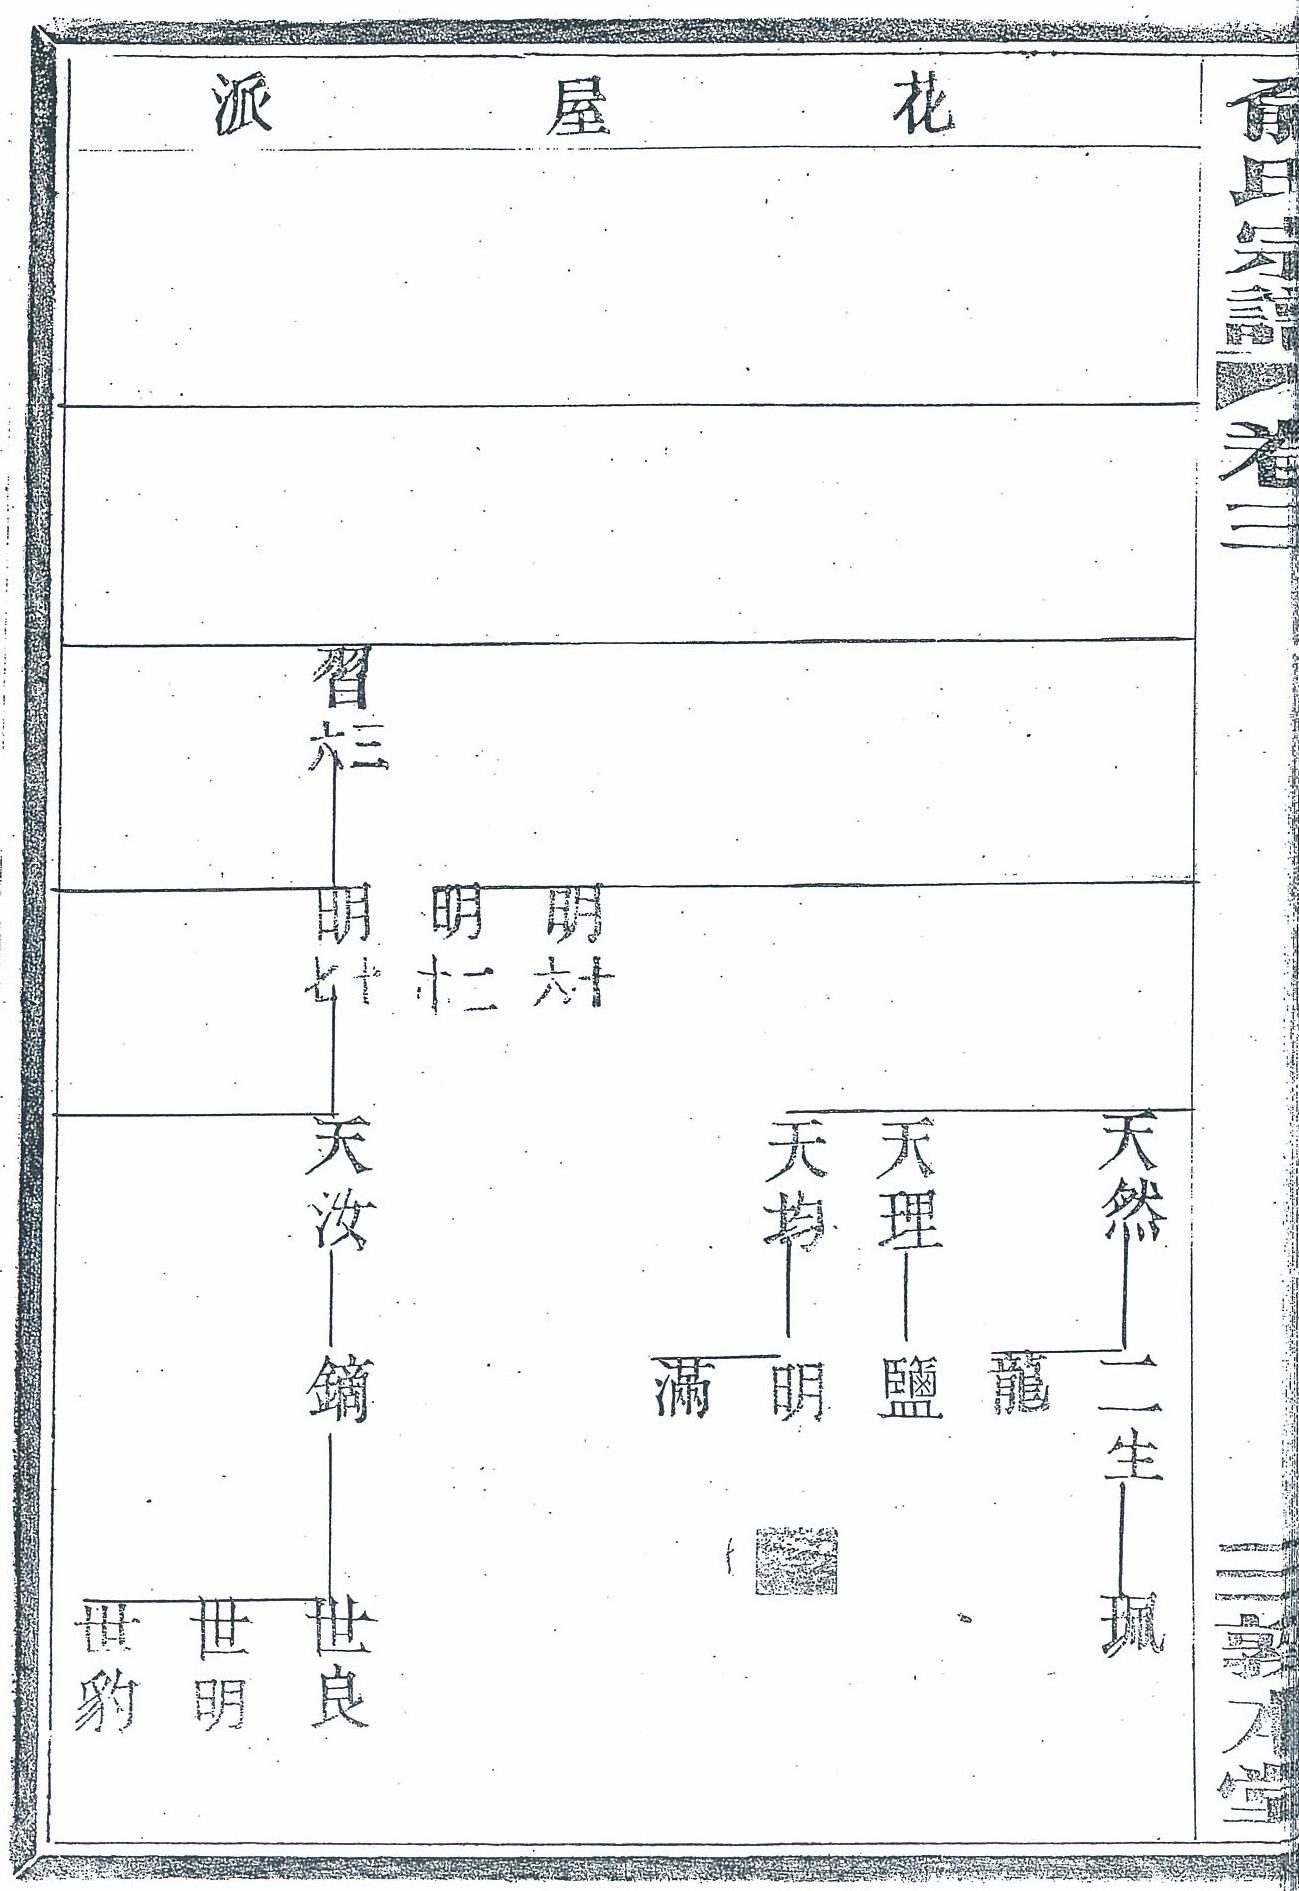 宗譜 卷三
三 敦本堂
花屋派
習 三六
明 十六
明 二十
明 十七
天然
天理
天均
天汝
二生
龍
鹽
明
滿
鏑
珮
世良
世明
世豹